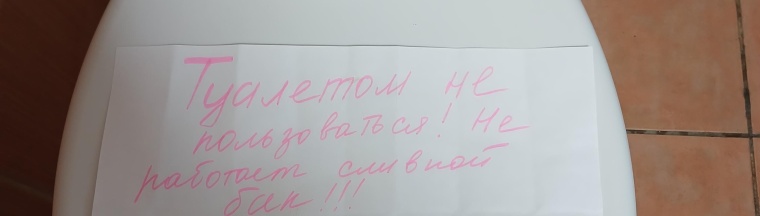 Туалетом не
пользоваться! Не
работает сливной
бак!!!